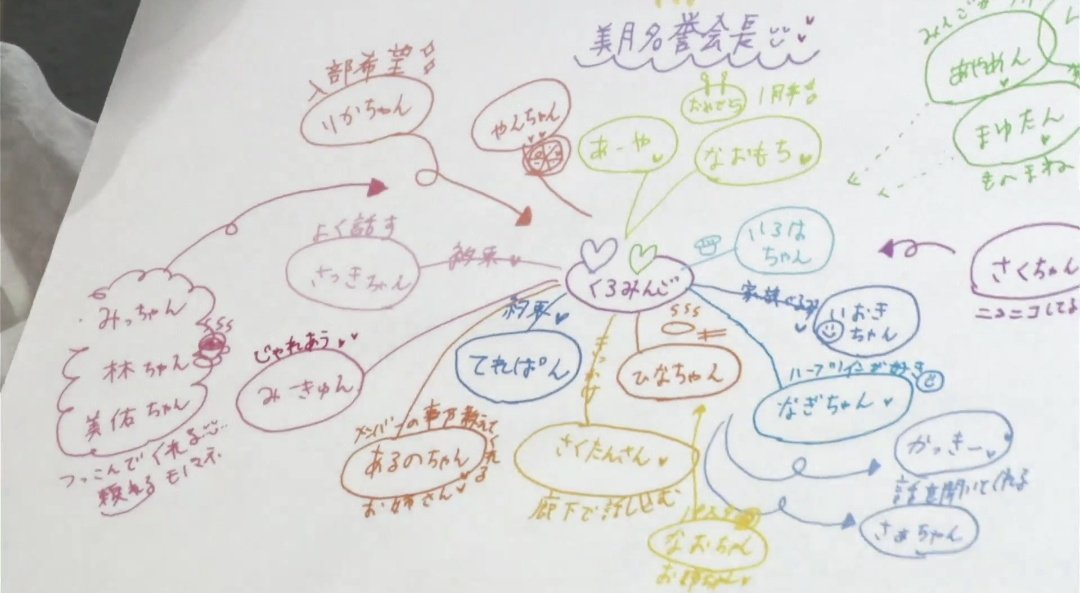 美月名誉会長
入部希望
りかちゃん
やんちゃん
あーや
1月半
なおもち
あやめん
まゆたん
ものまね
よく話す
さっきちゃん
約束
くろみんご
いろは
ちゃん
さくちゃん
ニコニコしてる
みっちゃん
林ちゃん
美佑ちゃん
つっこんでくれる
頼れる モノマネ
じゃれあう
みーきゅん
約束
てれぱん
きっかけ
ひなちゃん
いおき
ちゃん
ハーフツインが好き
なぎちゃん
メンバーの事力教えてくれる
あるのちゃん
お姉さん
さくたんさん
廊下で話し込む
なおちゃん
お姉ちゃん
かっきー
話を聞いてくれる
さぁちゃん